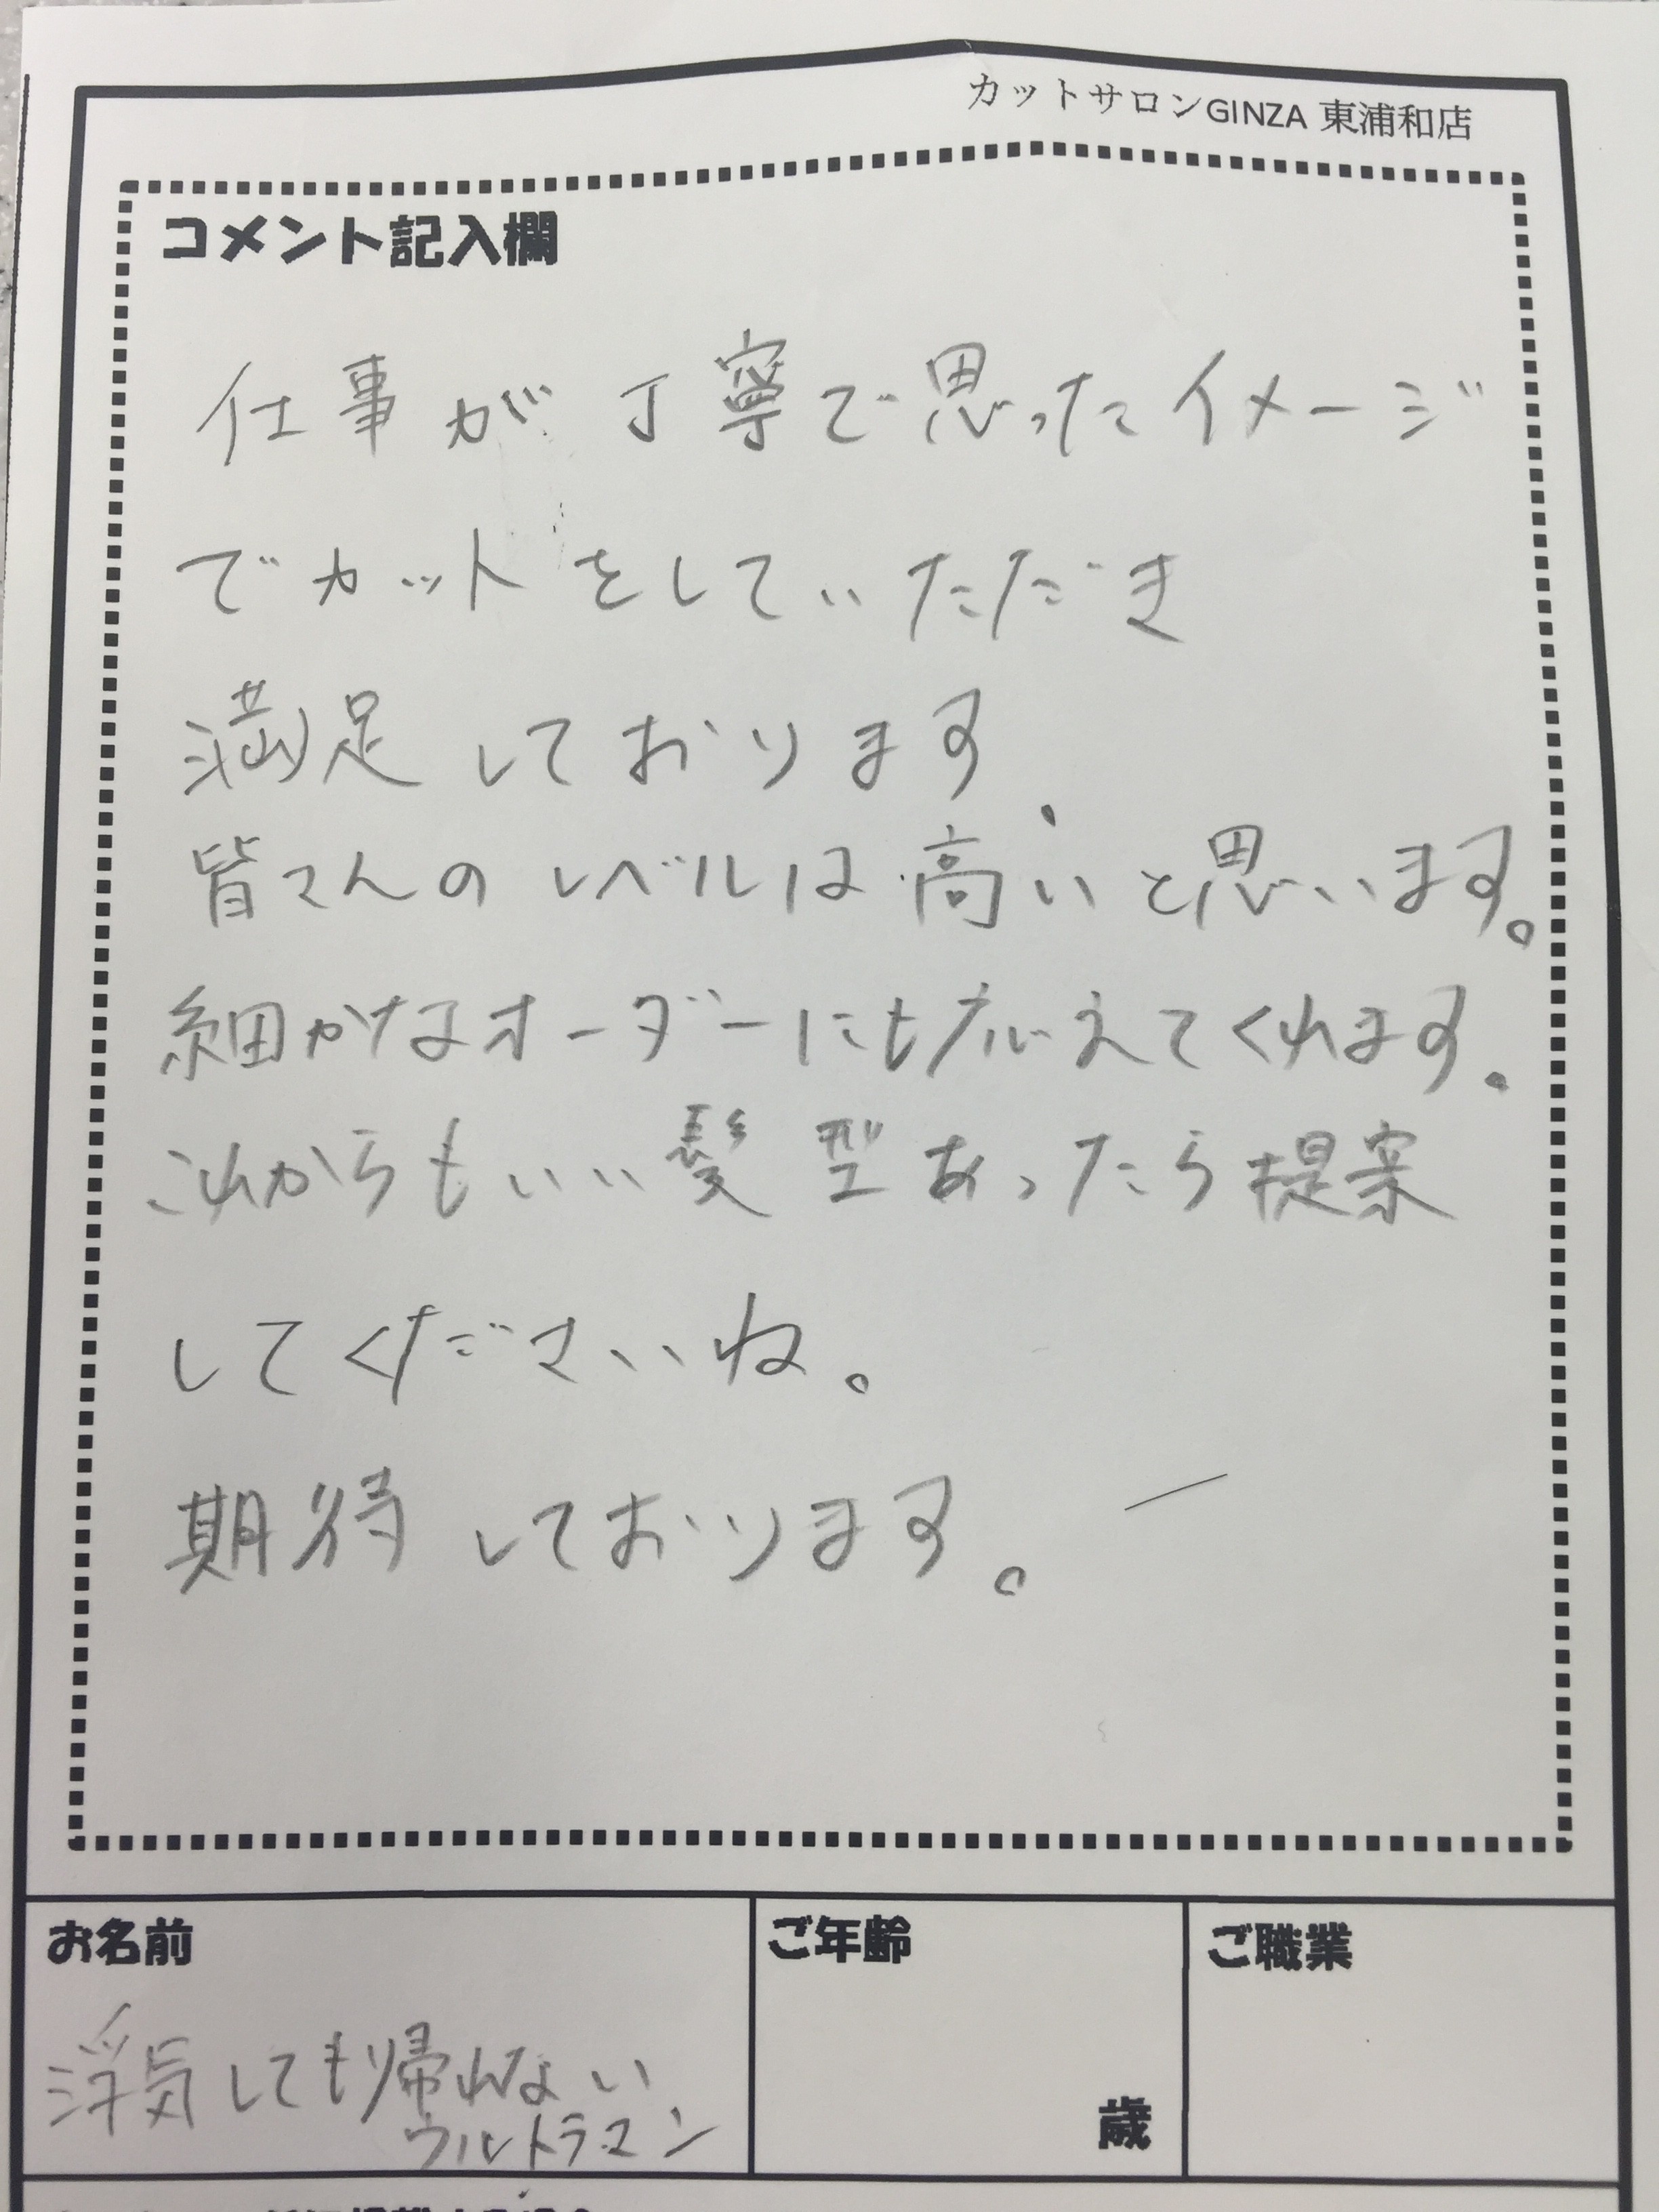 カットサロンGINZA 東浦和店
コメント記入欄
仕事が丁寧で思ったイメージ
でカットをしていただき
満足しております、
皆さんのレベルは高いと思います。
細かなオーダーにも加えてくれます。
これからもいい髪型あったら提案
してくださいね。
期待しております。
お名前
ご年齢
ご職業
浮気しても帰れない
ウルトラマン
歳